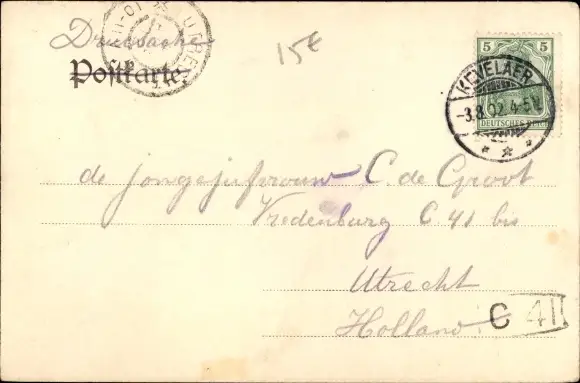 Drucksache
15€
Postkarte
5 5
DEUTSCHES REICH
KEVELAER
-3.8.02.4-5N.
de jongejufvrouw C. de Groot
Vredenburg C. 41 bis
Utrecht
Holland
C 41